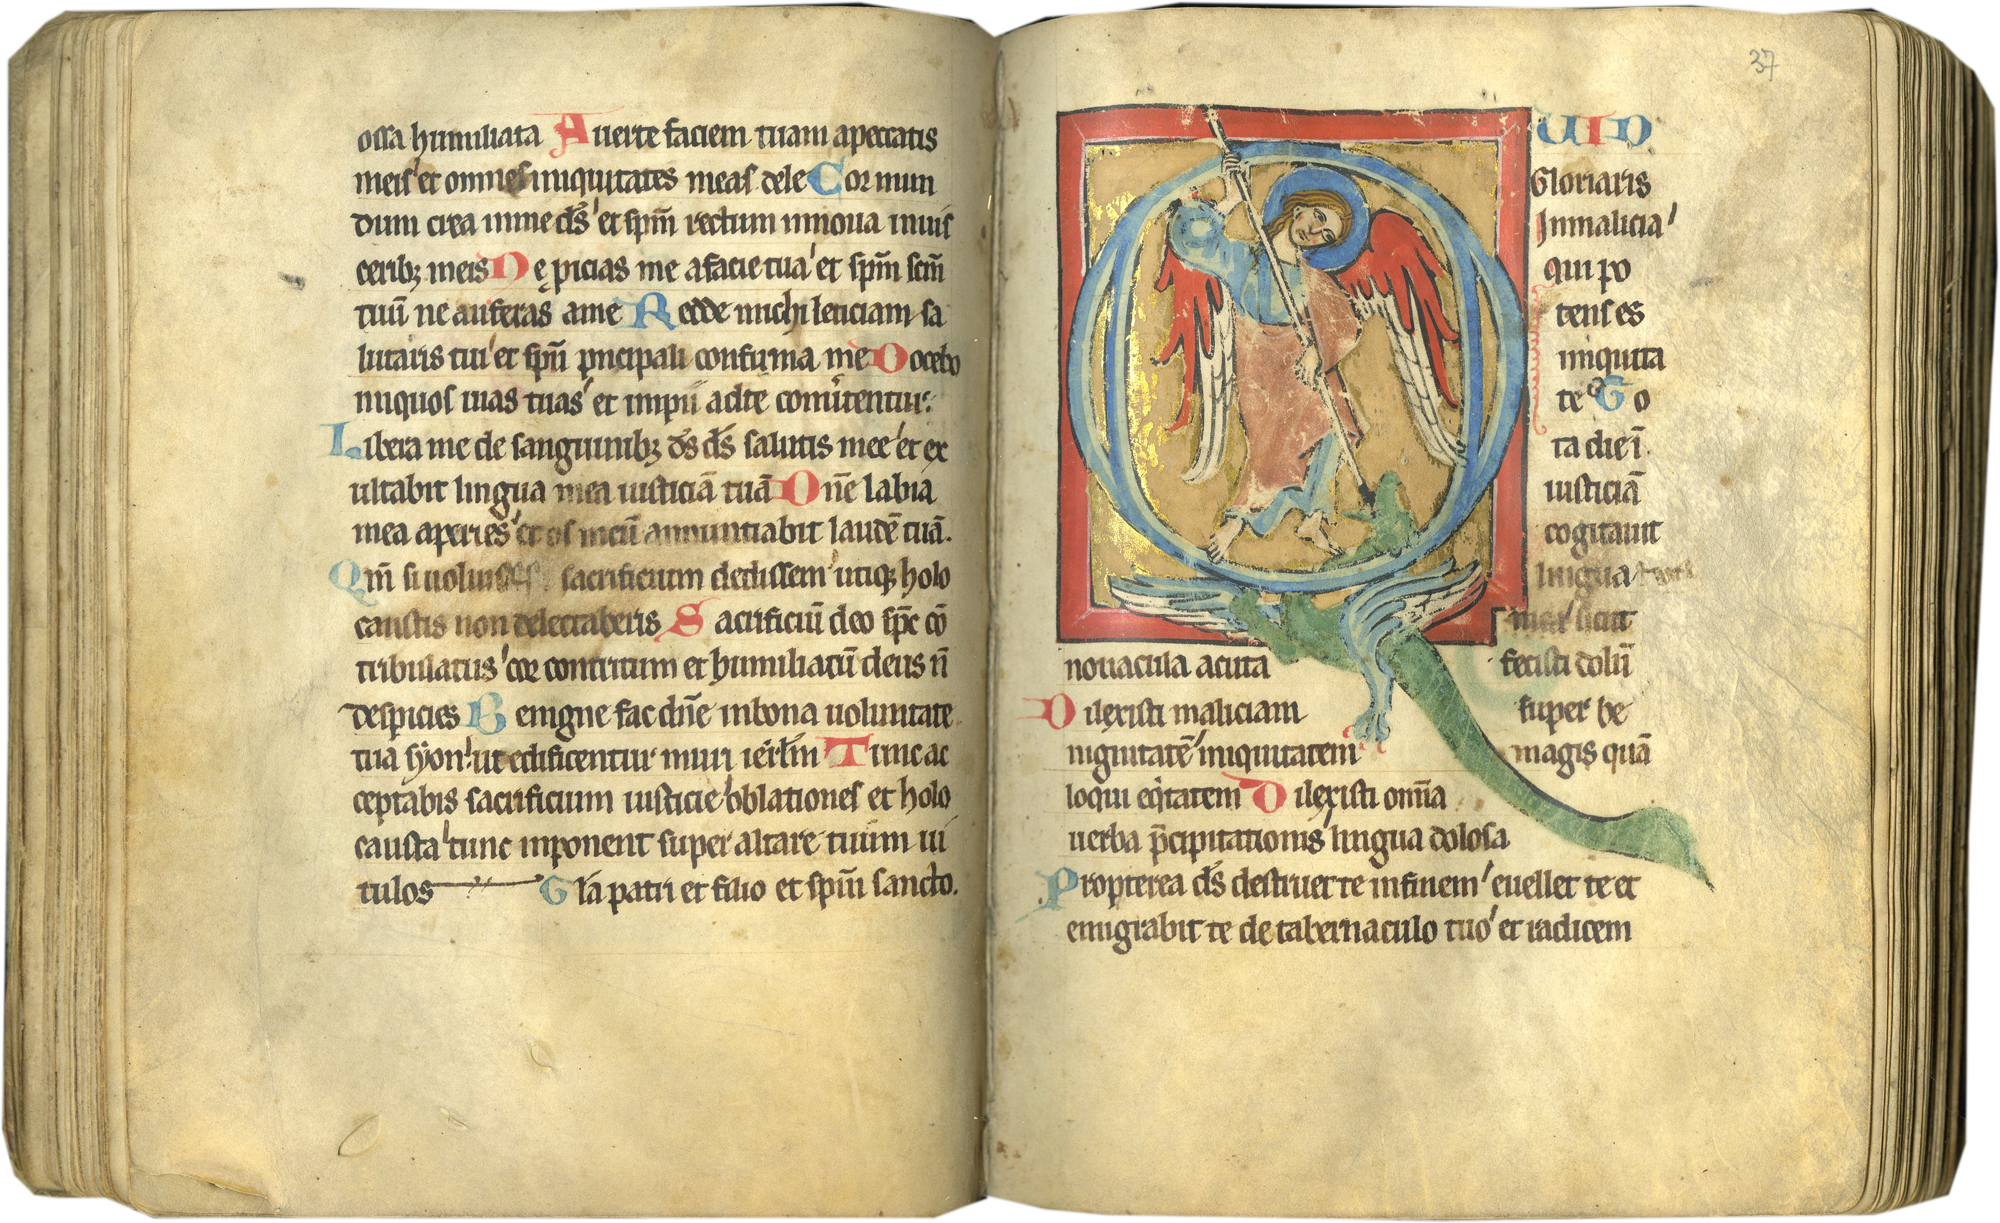 ossa humiliata Auerte faciem tuam apeccatis
meis et omnes iniquitates meas dele Cor mun
dum crea inme ds̄ et sp̄m rectum innoua inuis
ceribꝫ meis Ne ꝓicias me afacie tua et sp̄m sc̄m
tuū ne auferas ame Redde michi leticiam sa
lutaris tui et sp̄u p̄ncipali confirma me Docebo
iniquos uias tuas et impii adte conu̾tentur.
Libera me de sanguinibꝫ ds̄ ds̄ salutis mee et ex
ultabit lingua mea iusticiā tuā Dn̄e labia
mea aperies et os meū annuntiabit laudē tuā.
Qm̄ si uoluisses sacrificium dedissem utiqꝫ holo
caustis non delectaberis Sacrificiū deo sp̄c cō
tribulatus cor contritum et humiliatū deus n̄
despicies Benigne fac dn̄e inbona uoluntate
tua syon ut edificentur muri ier̄lm Tunc ac
ceptabis sacrificium iusticie oblationes et holo
causta tunc inponent super altare tuum ui
tulos Gl̄a patri et filio et sp̄iu sancto.
37
QUID
Gloriaris
Inmalicia
qui po
tens es
iniquita
te To
ta die ī
iusticiā
cogitauit
lingua tua
sicut
nouacula acuta fecisti dolū
Dilexisti maliciam super be
nignitatē iniquitatem magis quā
loqui eq̄tatem Dilexisti omīa
uerba p̄cipitationis lingua dolosa
Propterea ds̄ destruet te infinem euellet te et
emigrabit te de tabernaculo tuo et radicem